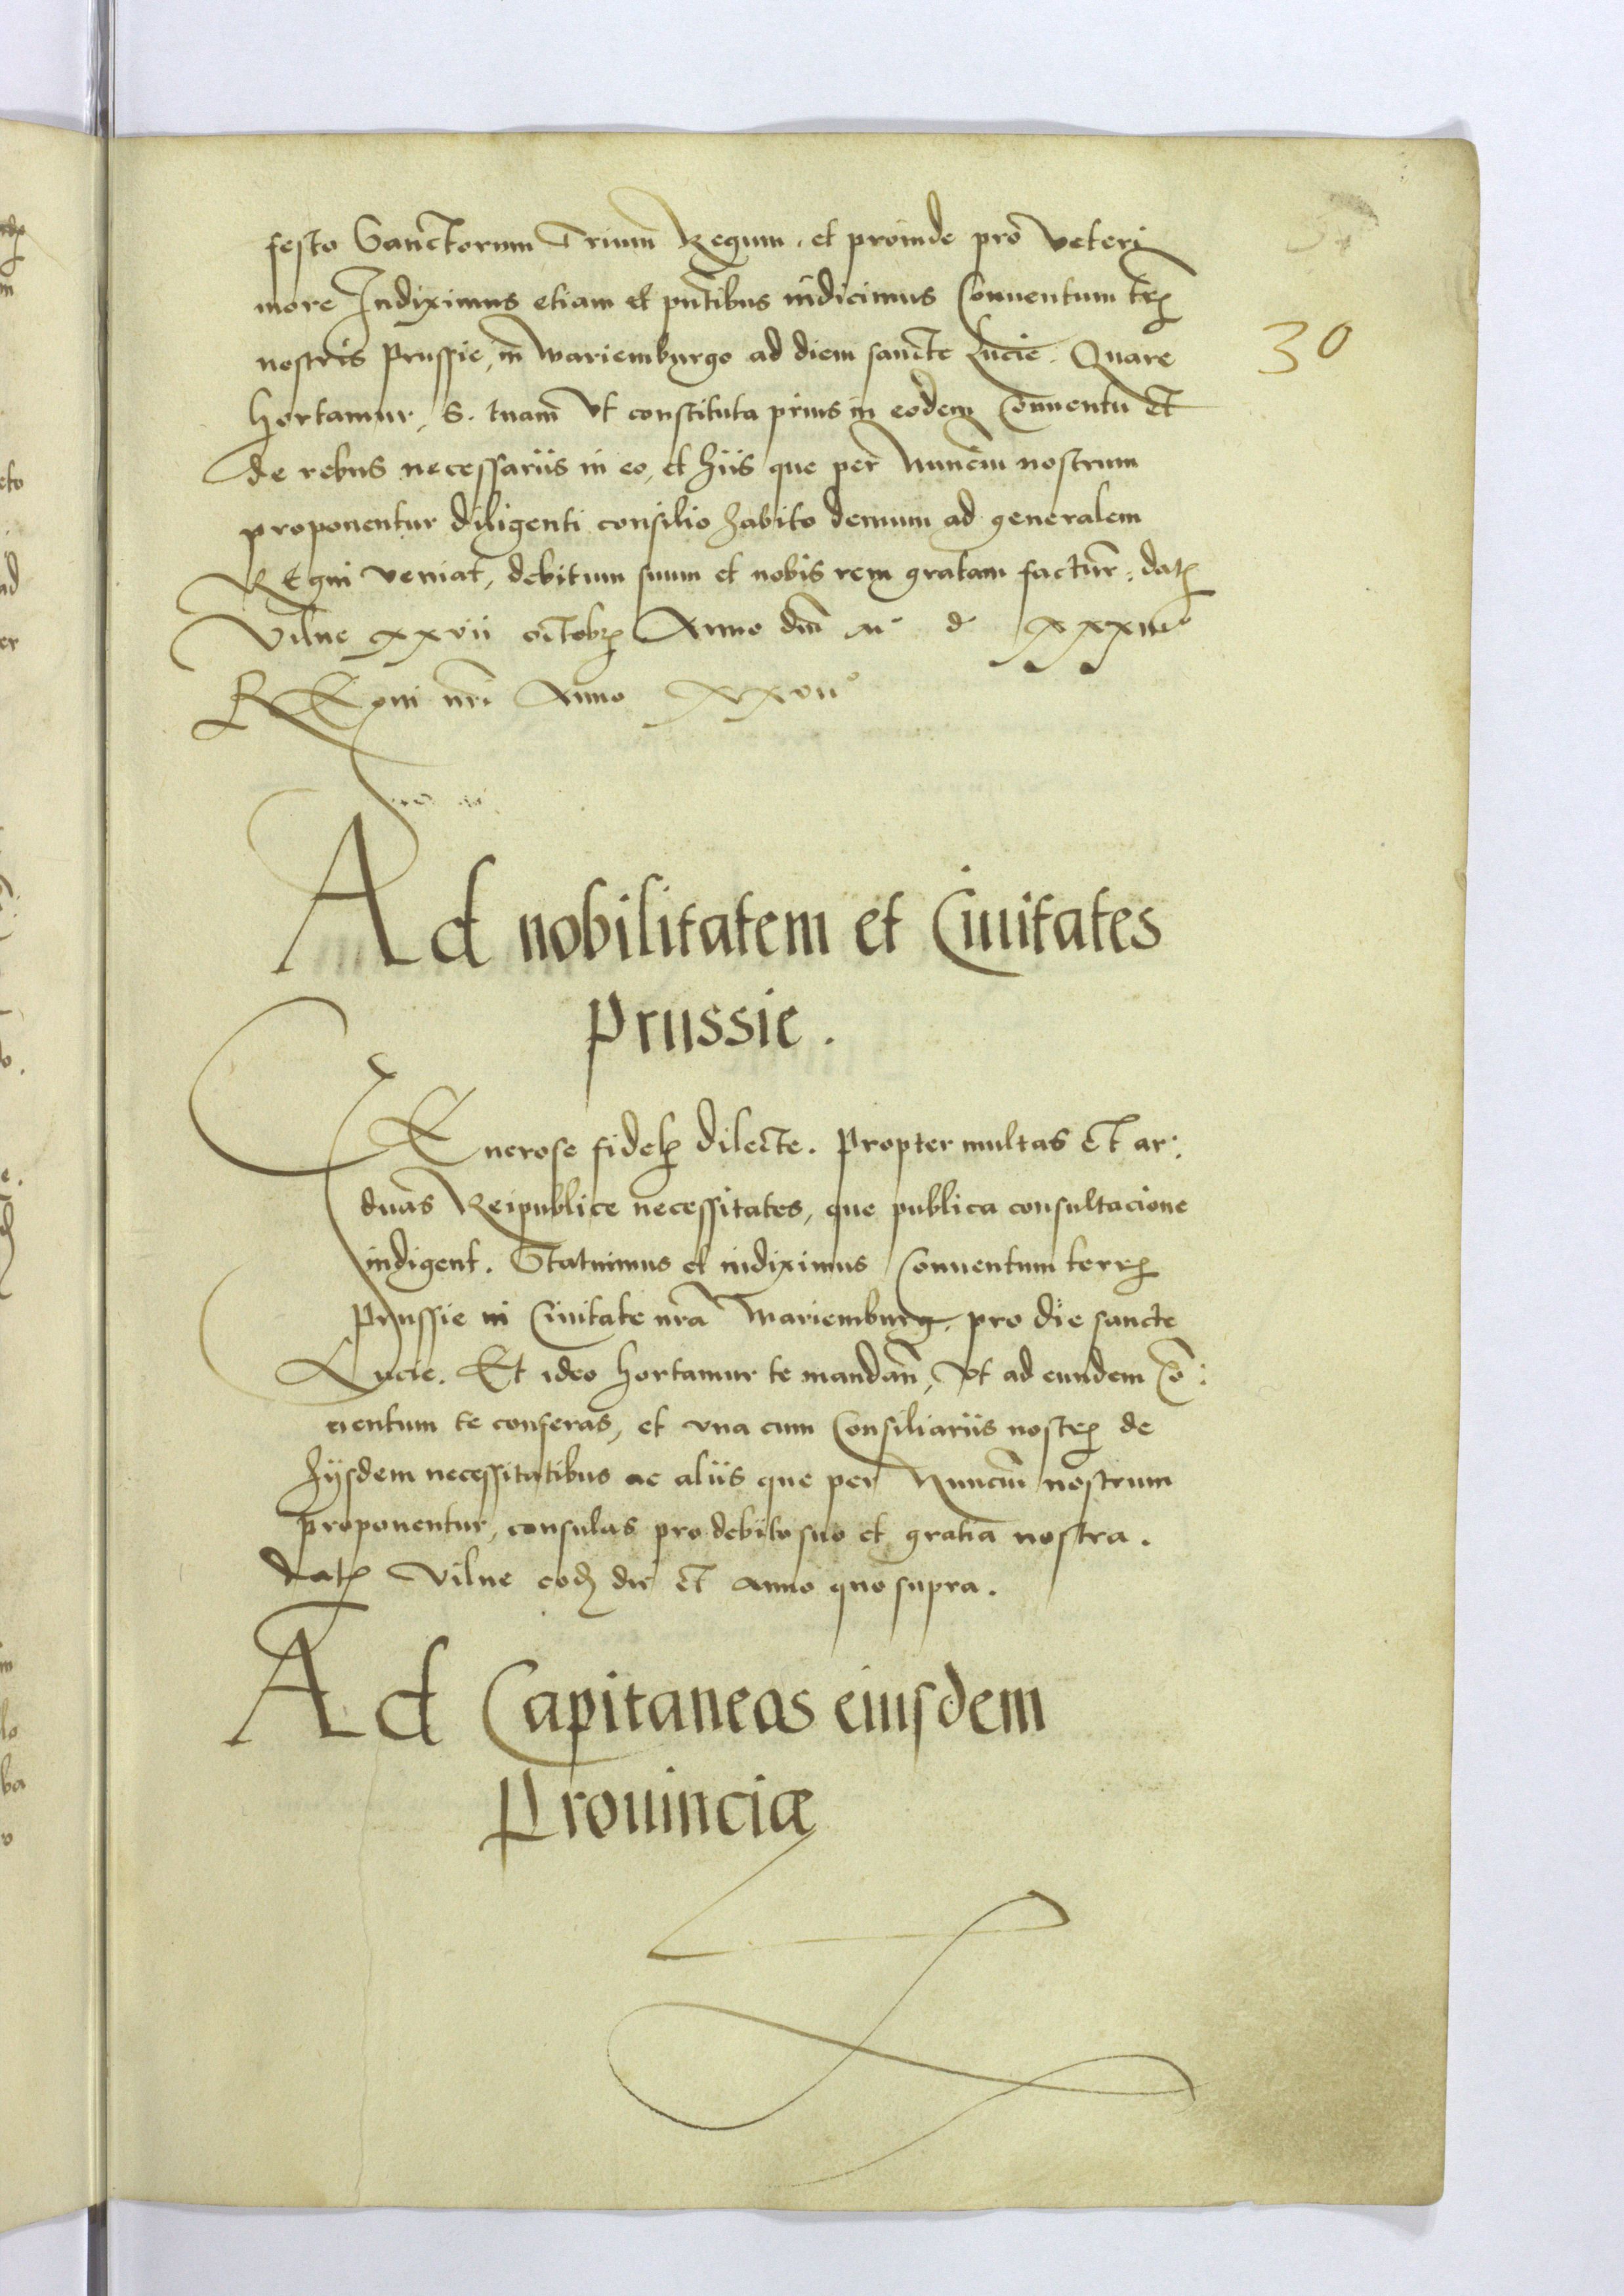 festo Sanctorum Trium Regum, et proinde pro veteri
more Indiximus etiam et pn̄tibus indicimus Conuentum terrꝝ
nostris Prussie, in Mariemburgo ad diem sancte Lucie. Quare
30
hortamur, S. tuam vt constituta prius in eodem Conuentu et
de rebus necessariis in eo, et hiis que per Nuncium nostrum
proponentur diligenti consilio habito demum ad generalem
Regni veniat, debitum suum et nobis rem gratam factur̄. datꝝ
Vilne xxvii octobrꝝ Anno dn̄i M° d°
Regni nr̄i Anno xxvii°
Ad nobilitatem et Ciuitates
Prussie.
GEnerose fidelꝭ dilecte. Propter multas et ar:
duas Reipublice necessitates, que publica consultacione
indigent. Statuimus et indiximus Conuentum terrꝝ
Prussie in Ciuitate nr̄a Mariemburg. pro die sancte
Lucie. Et ideo hortamur te mandan̄, vt ad eundem Cō:
uentum te conferas, et vna cum Consiliariis nostrꝭ de
hijsdem necessitatibus ac aliis que per Nuncium nostrum
proponentur, consulas pro debito suo et gratia nostra.
datꝝ Vilne eodꝫ die et anno quo supra.
Ad Capitaneos eiusdem
Prouinciæ